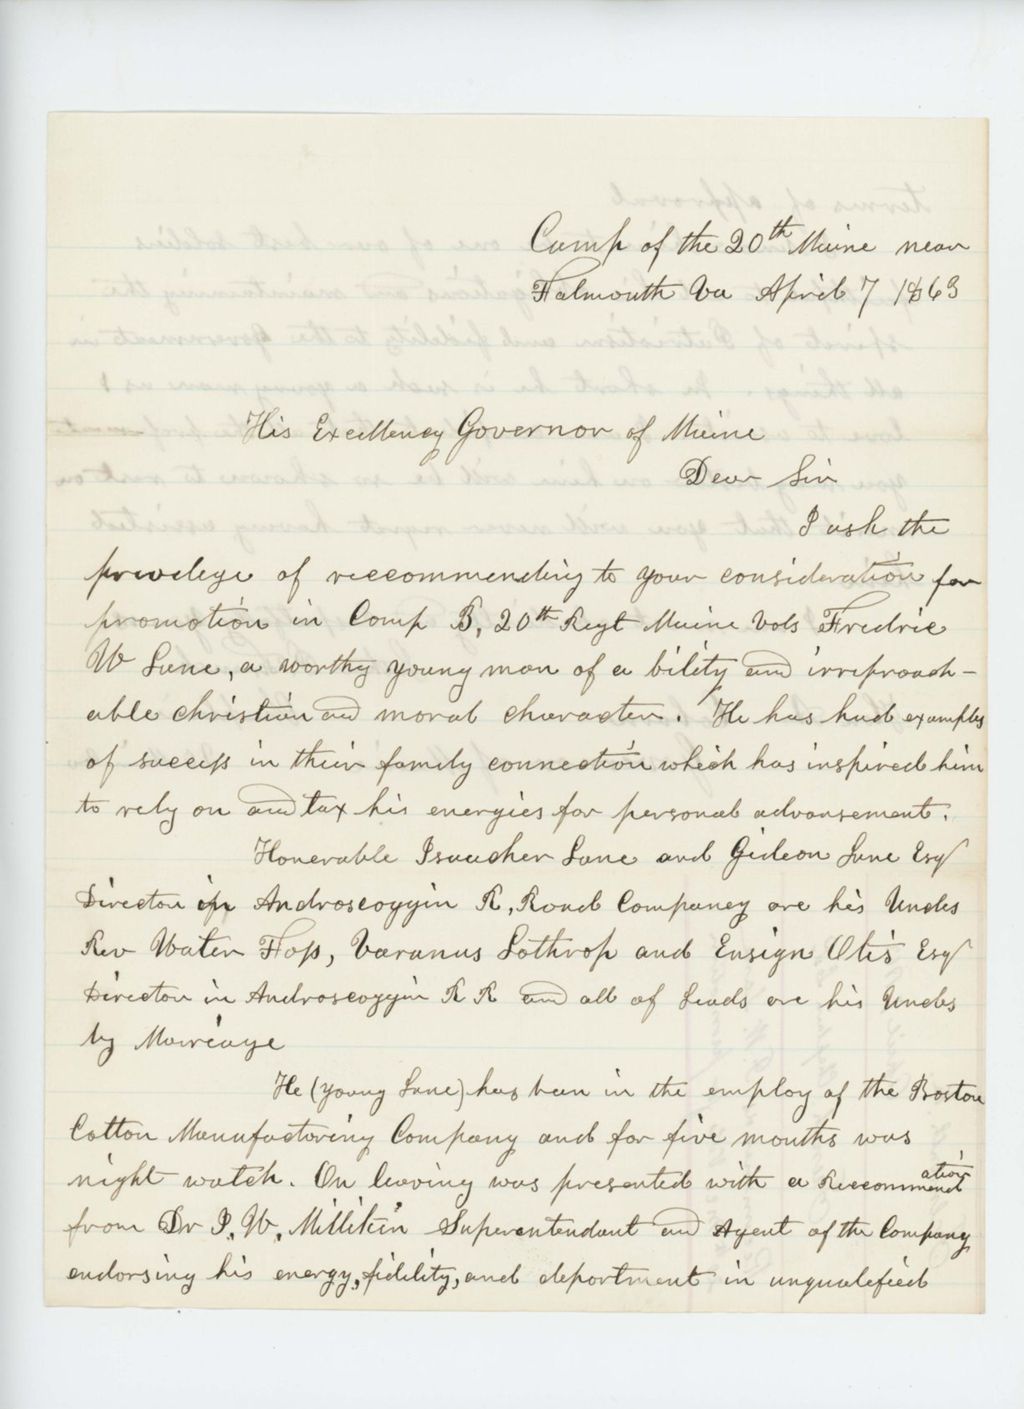 Camp of the 20th Maine near
Falmouth Va April 7 1863
His Excellency Governor of Maine
Dear Sir
I ask the
privelege of reccommending to your consideration for
promotion in Comp B, 20th Regt Maine Vols Fredric
W Lane, a worthy young man of a bility and irreproach-
able christian and moral character. He has had examples
of success in their family connection which has inspired him
to rely on and tax his energies for personal advansement.
Honerable Isaucher Lane and Gideon Lane Esq
Director in Androscoggin R, Road Company are his Uncles
Rev Water Foss, Varanus Lothrop and Ensign Otis Esq
Director in Androscoggin R R and all of Leads are his Uncles
by Marriage
He (young Lane) has been in the employ of the Boston
Cotton Manufactoring Company and for five months was
night watch. On leaving was presented with a Reccommendation
from Dr P. W. Millikin Superentendant and Agent of the Company
endorsing his energy, fidelity, and deportment in unqualefied